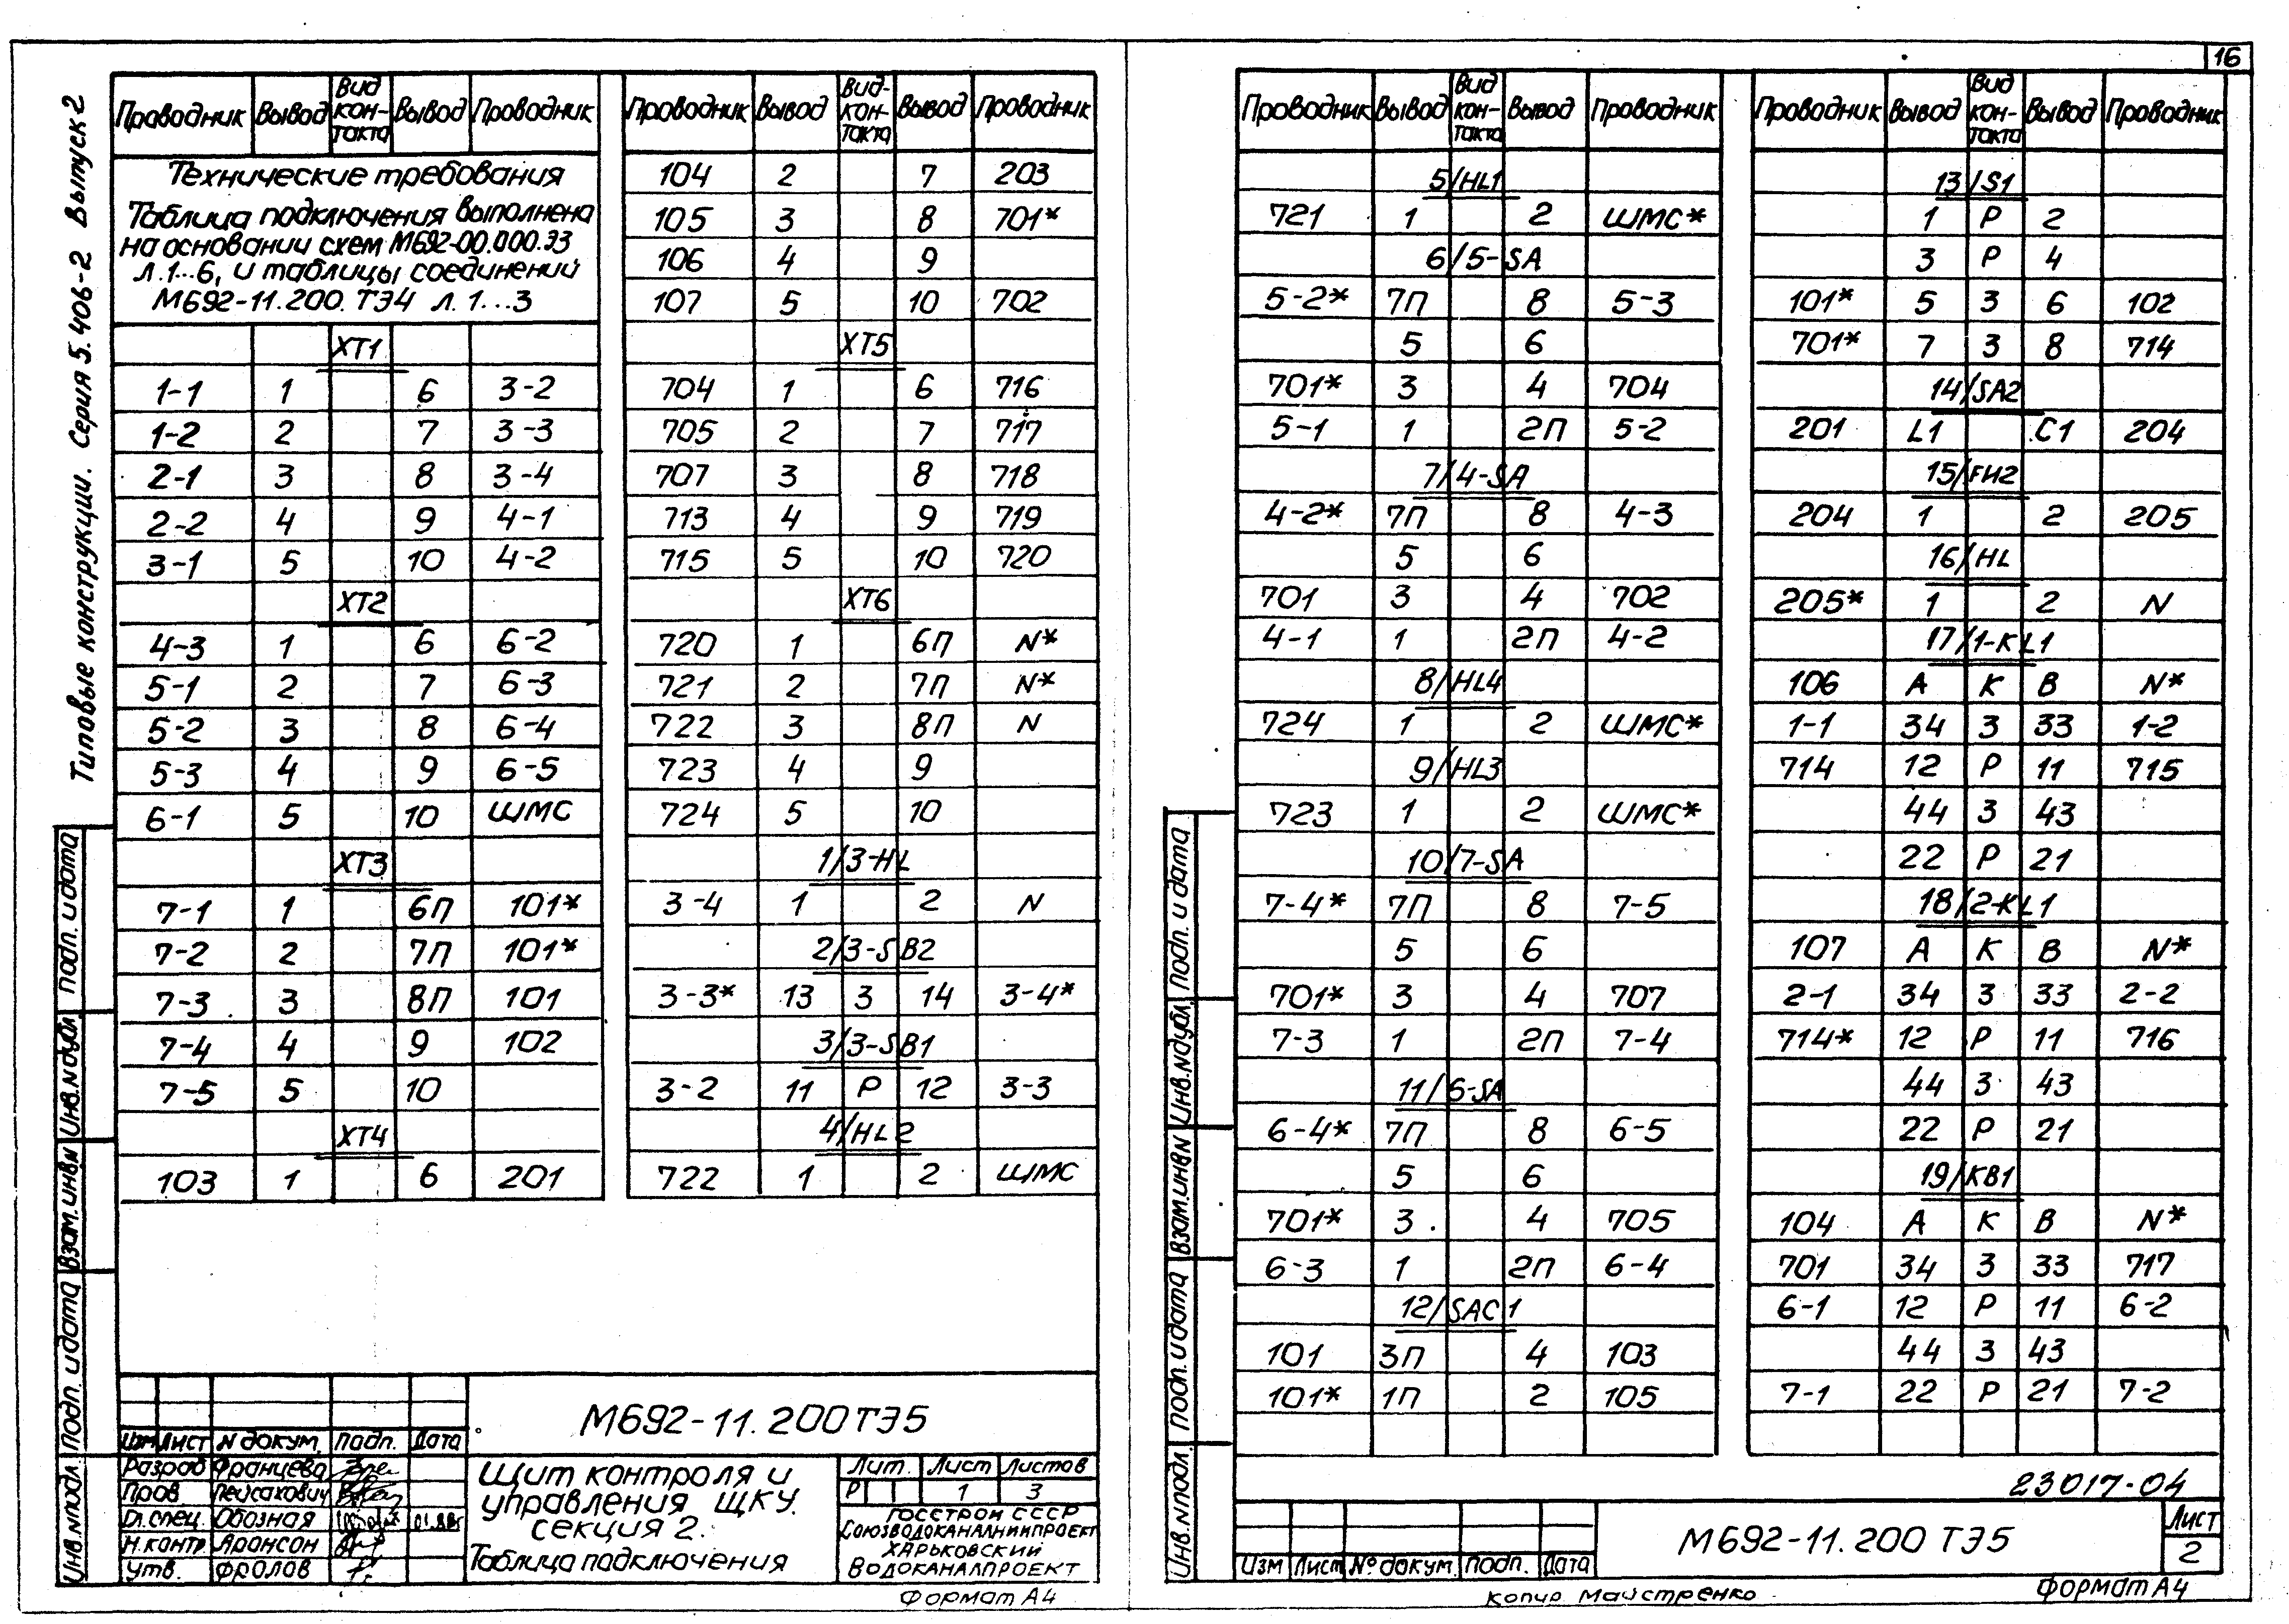 16
Типовые конструкции. Серия 5.406-2 Выпуск 2
Проводник Вывод Вид кон-такта Вывод Проводник
Технические требования
Таблица подключения выполнена
на основании схем М692-00.000.ЭЗ
л.1...6, и таблицы соединений
М692-11.200.ТЭ4 л. 1...3
ХТ1
1-1 1 6 3-2
1-2 2 7 3-3
2-1 3 8 3-4
2-2 4 9 4-1
3-1 5 10 4-2
ХТ2
4-3 1 6 6-2
5-1 2 7 6-3
5-2 3 8 6-4
5-3 4 9 6-5
6-1 5 10 ШМС
ХТ3
7-1 1 6П 101*
7-2 2 7П 101*
7-3 3 8П 101
7-4 4 9 102
7-5 5 10
ХТ4
103 1 6 201
Проводник Вывод Вид-кон-такта Вывод Проводник
104 2 7 203
105 3 8 701*
106 4 9
107 5 10 702
ХТ5
704 1 6 716
705 2 7 717
707 3 8 718
713 4 9 719
715 5 10 720
ХТ6
720 1 6П N*
721 2 7П N*
722 3 8П N
723 4 9
724 5 10
1/3-HL
3-4 1 2 N
2/3-SB2
3-3* 13 3 14 3-4*
3/3-SB1
3-2 11 Р 12 3-3
4/HL2
722 1 2 ШМС
Инв.N подл. Подп. и дата Взам.инв.N Инв.N дубл. Подп. и дата
М692-11.200ТЭ5
Изм Лист N докум. Подп. Дата
Разраб Францева
Пров Пейсакович
Гл.спец. Обозная
Н.контр. Аронсон
Утв. Фролов
Щит контроля и
управления ЩКУ.
секция 2.
Таблица подключения
Лит. Лист Листов
Р 1 3
ГОССТРОЙ СССР
СОЮЗВОДОКАНАЛНИИПРОЕКТ
ХАРЬКОВСКИЙ
ВОДОКАНАЛПРОЕКТ
Формат А4
Проводник Вывод Вид кон-такта Вывод Проводник
5/HL1
721 1 2 ШМС*
6/5-SA
5-2* 7П 8 5-3
5 6
701* 3 4 704
5-1 1 2П 5-2
7/4-SA
4-2* 7П 8 4-3
5 6
701 3 4 702
4-1 1 2П 4-2
8/HL4
724 1 2 ШМС*
9/HL3
723 1 2 ШМС*
10/7-SA
7-4* 7П 8 7-5
5 6
701* 3 4 707
7-3 1 2П 7-4
11/6-SA
6-4* 7П 8 6-5
5 6
701* 3 4 705
6-3 1 2П 6-4
12/SAC1
101 3П 4 103
101* 1П 2 105
Проводник Вывод Вид кон-такта Вывод Проводник
13/S1
1 Р 2
3 Р 4
101* 5 3 6 102
701* 7 3 8 714
14/SA2
201 L1 C1 204
15/FU2
204 1 2 205
16/HL
205* 1 2 N
17/1-KL1
106 А К В N*
1-1 34 3 33 1-2
714 12 Р 11 715
44 3 43
22 Р 21
18/2-KL1
107 А К В N*
2-1 34 3 33 2-2
714* 12 Р 11 716
44 3 43
22 Р 21
19/КВ1
104 А К В N*
701 34 3 33 717
6-1 12 Р 11 6-2
44 3 43
7-1 22 Р 21 7-2
Инв.N подл. Подп. и дата Взам.инв.N Инв.N дубл. Подп. и дата
23017-04
Изм Лист № докум. Подп. Дата
М692-11.200 ТЭ5
Лист
2
Копир Майстренко
Формат А4